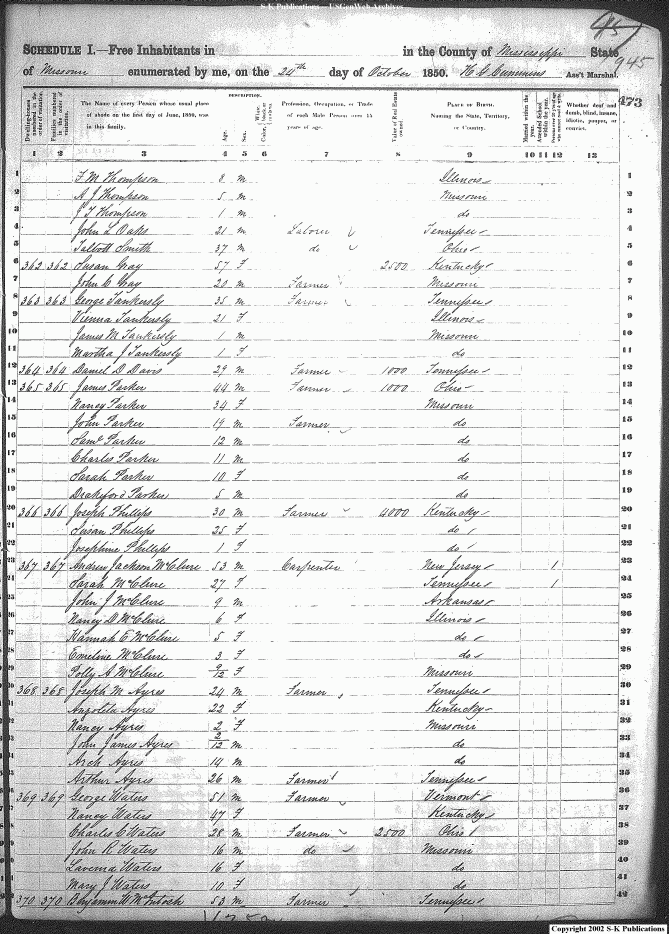 S-K Publications - USGenWeb Archives
945
SCHEDULE I.—Free Inhabitants in in the County of Mississippi State
of Missouri enumerated by me, on the 24th day of October 1850. Ass't Marshal.
473
DESCRIPTION.
Dwelling-houses numbered in the order of visitation. Families numbered in the order of visitation. The Name of every Person whose usual place of abode on the first day of June, 1850, was in this family. Age. Sex. Color, Profession, Occupation, or Trade of each Male Person over 15 years of age. Value of Real Estate owned PLACE OF BIRTH. Naming the State, Territory, or Country. Married within the year. Attended School within the year. Whether deaf and dumb, blind, insane, idiotic, pauper, or convict.
1 2 3 4 5 6 7 8 9 10 11 12 13
1 F M Thompson 8 m Illinois 1
2 A J Thompson 5 m Missouri 2
3 J T Thompson 1 m do 3
4 John L Oaks 21 m Laborer Tennessee 4
5 Talbott Smith 37 m do Ohio 5
6 362 362 Susan Gray 57 F 2500 Kentucky 6
7 John C Gray 20 m Farmer Missouri 7
8 363 363 George Tankersly 35 m Farmer Tennessee 8
9 Vienna Tankersly 21 F Illinois 9
10 James M Tankersly 1 m Missouri 10
11 Martha J Tankersly 1 F do 11
12 364 364 Daniel D Davis 29 m Farmer 1000 Tennessee 12
13 365 365 James Parker 44 m Farmer 1000 Ohio 13
14 Nancy Parker 34 F Missouri 14
15 John Parker 19 m Farmer do 15
16 Saml Parker 12 m do 16
17 Charles Parker 11 m do 17
18 Sarah Parker 10 F do 18
19 Drakeford Parker 5 m do 19
20 366 366 Joseph Phillips 30 m Farmer 4000 Kentucky 20
21 Susan Phillips 25 F do 21
22 Josephine Phillips 1 F do 22
23 367 367 Andrew Jackson McClure 53 m Carpenter New Jersey 1 23
24 Sarah McClure 27 F Tennessee 1 24
25 John J McClure 9 m Arkansas 25
26 Nancy D McClure 6 F Illinois 26
27 Hannah E McClure 5 F do 27
28 Emeline McClure 3 F do 28
29 Polly A McClure 9/12 F Missouri 29
30 368 368 Joseph M Ayres 24 m Farmer Tennessee 30
31 Ayres 22 F Kentucky 31
32 Nancy Ayres 2 F Missouri 32
33 John James Ayres 2/12 m do 33
34 Arch Ayres 14 m do 34
35 Arthur Ayres 26 m Farmer Tennessee 35
36 369 369 George Waters 51 m Farmer Vermont 36
37 Nancy Waters 47 F Kentucky 37
38 Charles C Waters 28 m Farmer 2500 Ohio 38
39 John R Waters 16 m do Missouri 39
40 Laverna Waters 16 F do 40
41 Mary J Waters 10 F do 41
42 370 370 Benjamin W McIntosh 53 m Farmer Tennessee 42
Copyright 2002 S-K Publications